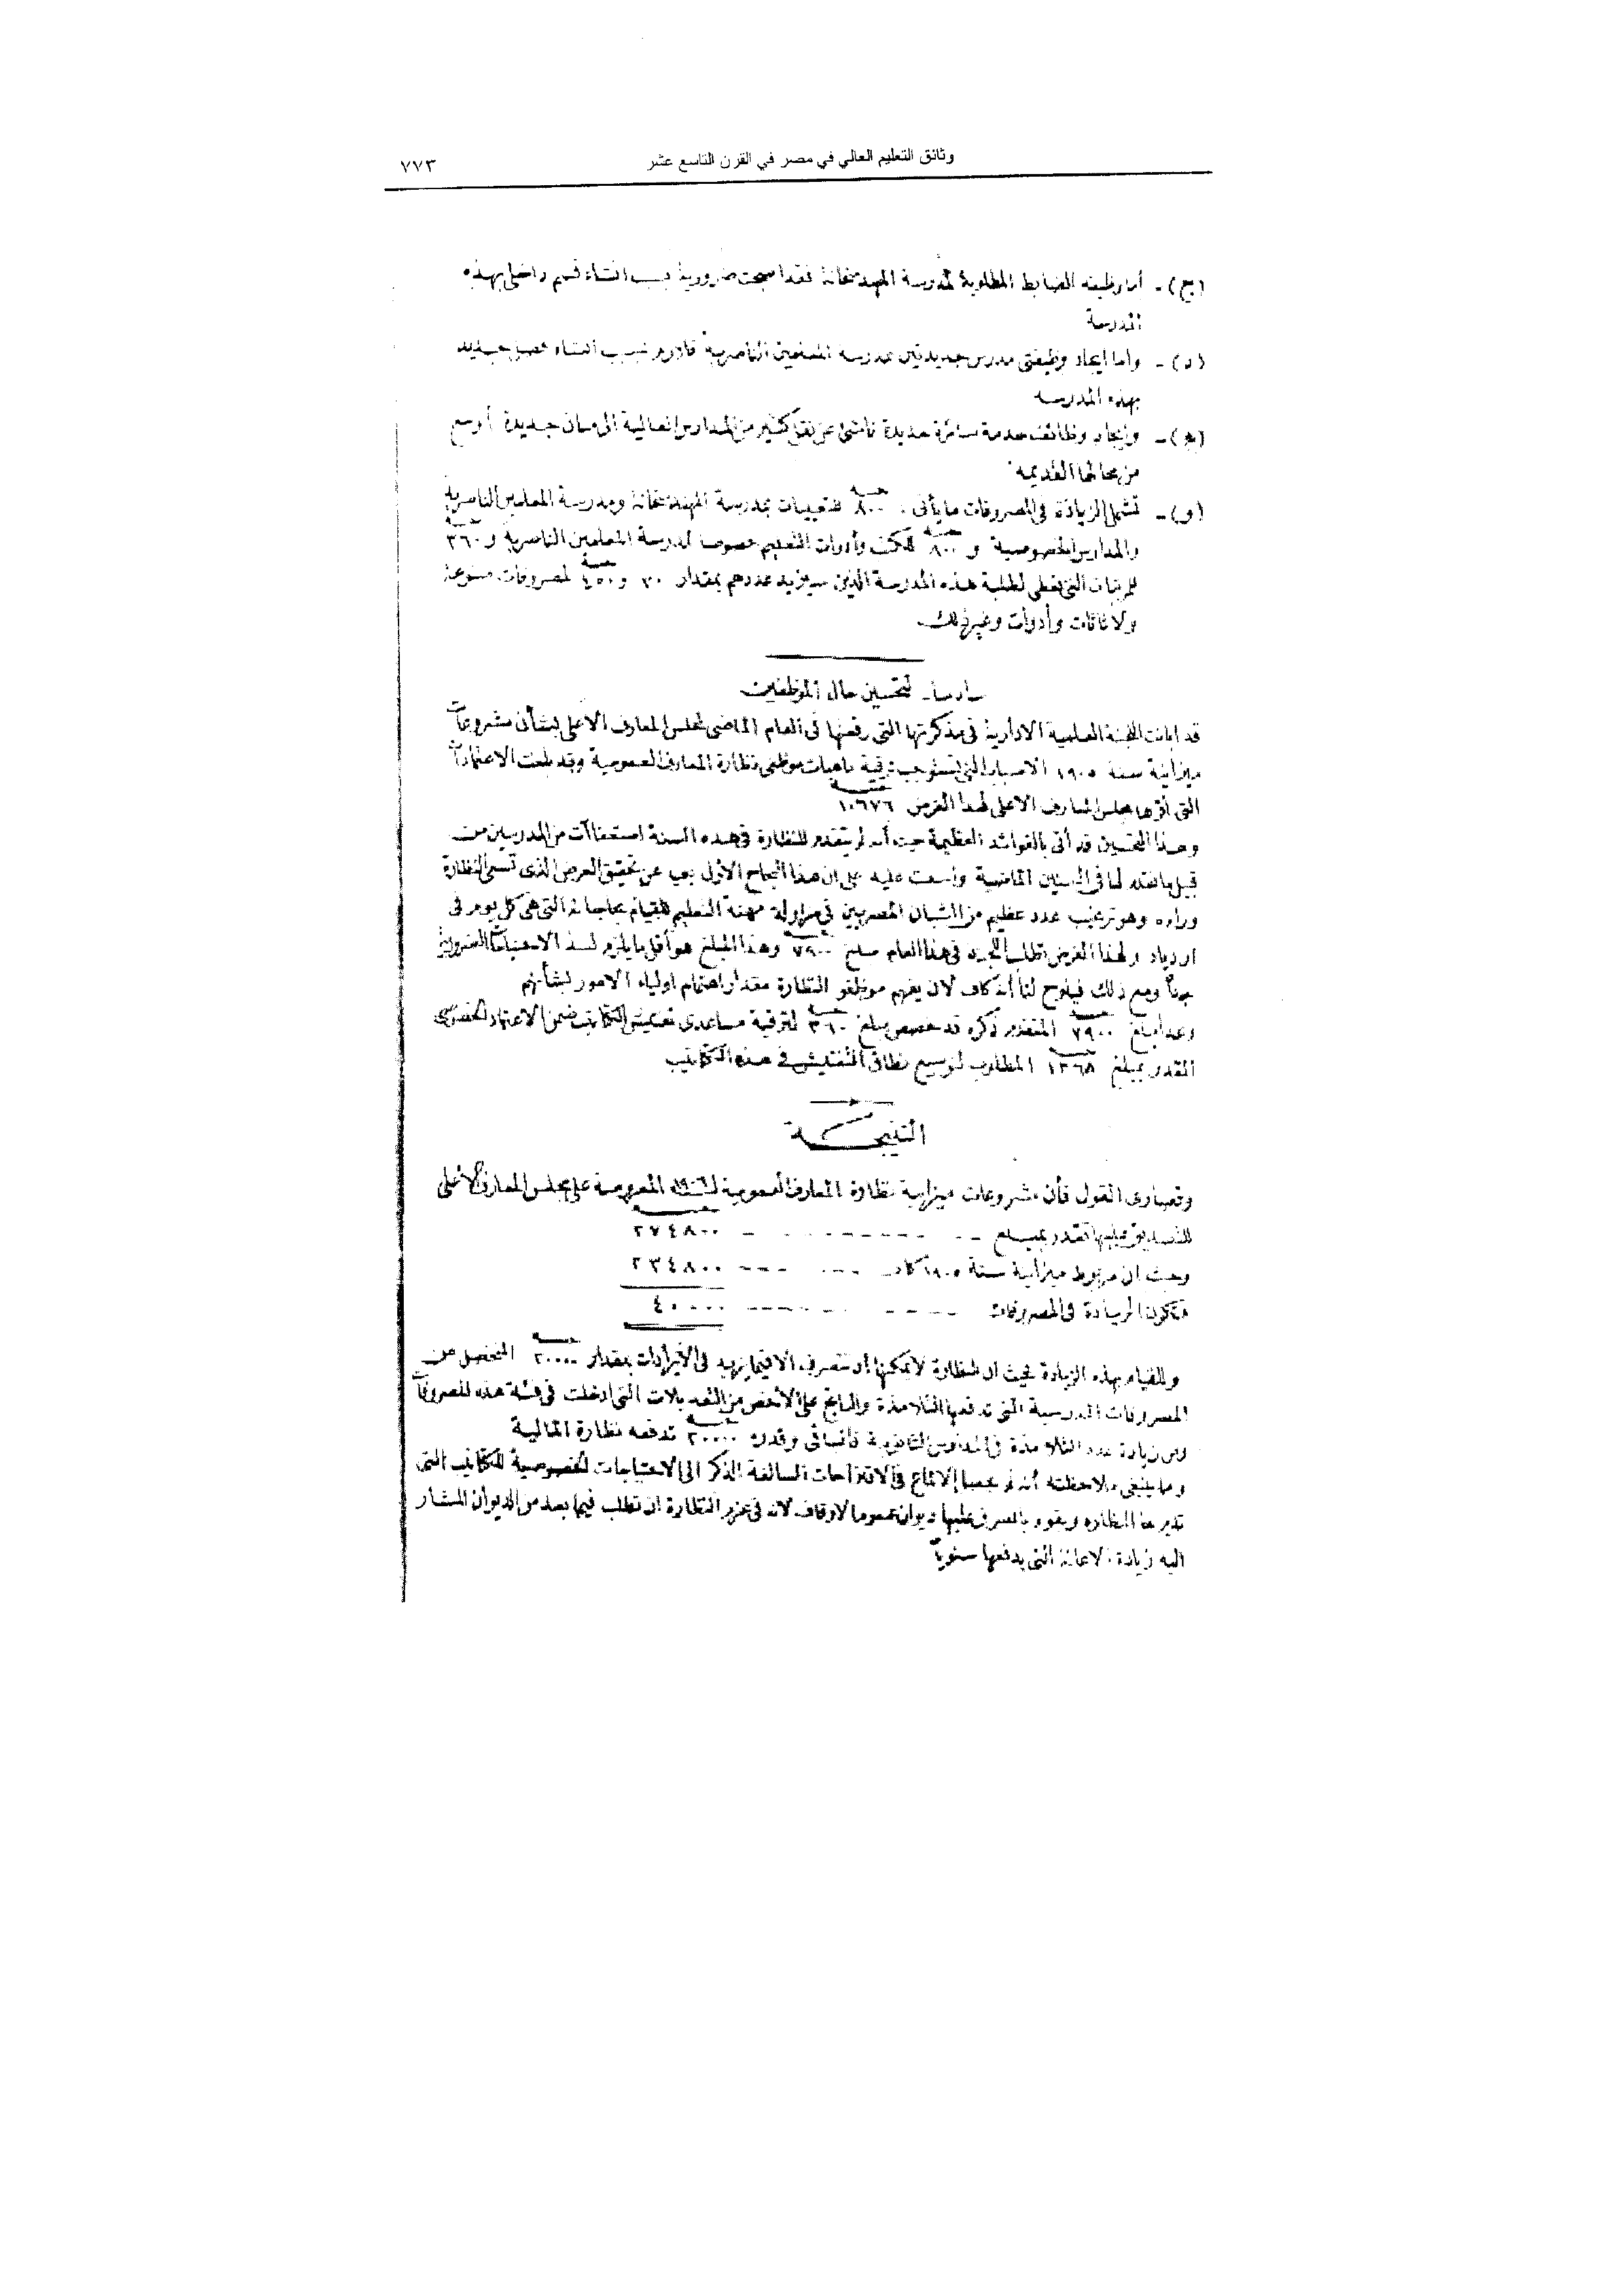 وثائق التعليم العالي في مصر في القرن التاسع عشر ٧٧٣
(ج) - أما وظيفة الضابط المطلوبة لمدرسة المهندسخانة فقد اصبحت ضرورية بسبب انشاء قسم داخلى بهذه
المدرسة
(د) - واما ايجاد وظيفتى مدرس جديدتين بمدرسة المعلمين الناصرية فلازم بسبب انشاء فصل جديد
بهذه المدرسة
(ه) - وايجاد وظائف خدمة سائرة جديدة ناشئ عن نقل كثير من المدارس العالية الى مبان جديدة أوسع
من محالها القديمة
(و) - تشمل الزيادة فى المصروفات ما يأتى . ٨٠٠ للتعيينات بمدرسة المهندسخانة ومدرسة المعلمين الناصرية
والمدارس الخصوصية و ٨٠٠ للكتب وأدوات التعليم خصوصا لمدرسة المعلمين الناصرية و ٣٦٠
للمرتبات التى تعطى لطلبة هذه المدرسة الذين سيزيد عددهم بمقدار ٣٠ و لمصروفات متنوعة
ولاثاثات وأدوات وغير ذلك
سادسا - لتحسين حال الموظفين
قد ابانت اللجنة العلمية الادارية فى مذكرتها التى رفعتها فى العام الماضى لمجلس المعارف الاعلى بشأن مشروعات
ميزانية سنة ١٩٠٥ الاسباب التى تستوجب ترقية ماهيات موظفى نظارة المعارف العمومية وقد بلغت الاعتمادات
التى أقرها مجلس المعارف الاعلى لهذا الغرض ١٠٦٧٦
وهذا التحسين قد أتى بالفوائد العظيمة حيث أنه لم يتقدم للنظارة فى هذه السنة استعفاآت من المدرسين من
قبيل ما تقدم لها فى السنين الماضية على ان هذا النجاح الأول عن تحقيق الغرض الذى تسعى النظارة
وراءه وهو ترغيب عدد عظيم من الشبان المصريين فى مزاولة مهنة التعليم للقيام بحاجاته التى هى كل يوم فى
ازدياد ولهذا الغرض تطلب اللجنة فى هذا العام مبلغ ٧٩٠٠ وهذا المبلغ هو أقل ما يلزم لسد الاحتياجات الضرورية
جداً ومع ذلك فيلوح لنا أنه كاف لان يفهم موظفو النظارة مقدار اهتمام اولياء الامور بشأنهم
وعدا مبلغ ٧٩٠٠ المتقدم ذكره قد خصص مبلغ ٣٦٠ لترقية مساعدى تفتيش الكتاتيب ضمن الاعتماد الخصوصى
المقدر بمبلغ ١٣٦٨ المطلوب لتوسيع نطاق التفتيش فى هذه الكتاتيب
النتيجة
وقصارى القول فأن مشروعات ميزانية نظارة المعارف العمومية لسنة ١٩٠٦ المعروضة على مجلس المعارف الأعلى
للتصديق عليها تقدر بمبلغ ٢٧٤٨٠٠
وحيث ان مربوط ميزانية سنة ١٩٠٥ كان ٢٣٤٨٠٠
فتكون الزيادة فى المصروفات ٤٠٠٠٠
وللقيام بهذه الزيادة بحيث ان النظارة لا يمكنها أن تتصرف الا فيما يزيد فى الأيرادات بمقدار ٢٠٠٠٠ المتحصل من
المصروفات المدرسية التى تدفعها التلامذة والناتج على الأخص من التعديلات التى ادخلت فى فئة هذه المصروفات
ومن زيادة عدد التلامذة فى المدارس الثانوية فالباقى وقدره ٢٠٠٠٠ تدفعه نظارة المالية
ومما ينبغى ملاحظته أنه لم يحصل الالماع فى الاقتراحات السالفة الذكر الى الاحتياجات الخصوصية للكتاتيب التى
تديرها النظارة ويقوم بالصرف عليها ديوان عموم الاوقاف لانه فى عزم النظارة ان تطلب فيما بعد من الديوان المشار
اليه زيادة الاعانة التى يدفعها سنوياً